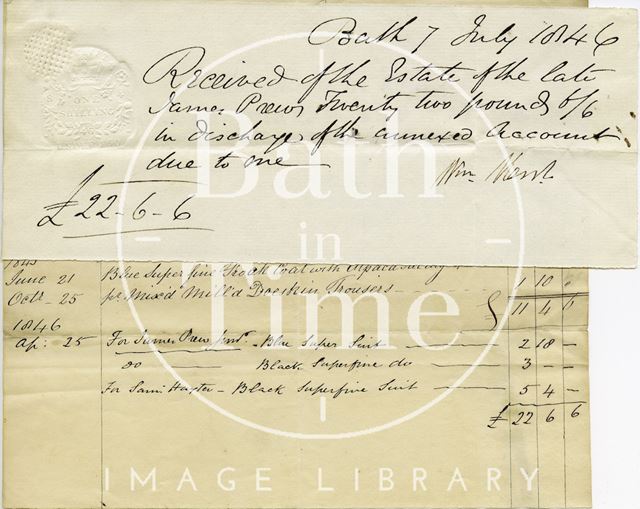 Bath 7 July 1846
Received of the Estate of the late
James Prew Twenty two pounds 6/6
in discharge of the annexed Account
due to me
£22-6-6
Wm
1845
June 21 Blue Superfine Frock Coat with Alpaca 1 10
Octr 25 pr Mix'd Mill'd Doeskin Trousers -
£ 11 4 6
1846
Ap: 25 For James Prew Junr. - Blue Super Suit — 2 18 -
do — Black Superfine do — 3 - -
For Saml Hayter - Black Superfine Suit — 5 4 -
£ 22 6 6
Bath
in
Time
IMAGE LIBRARY